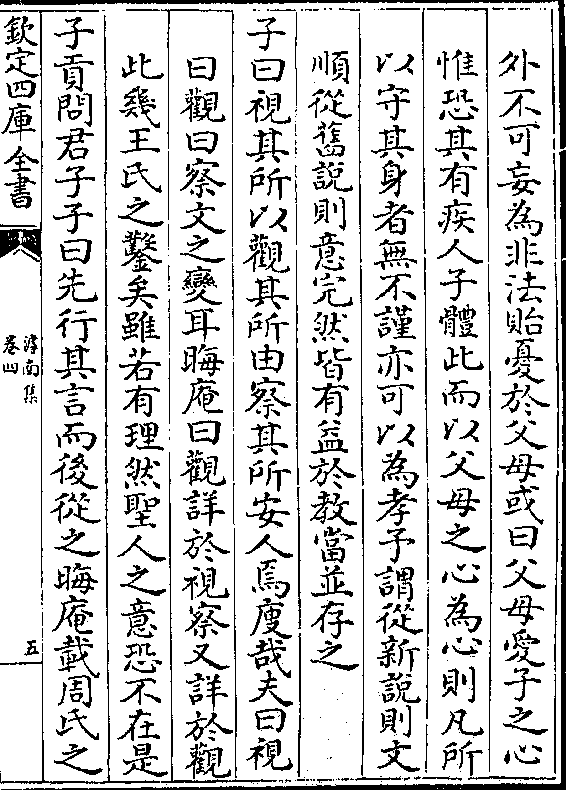 外不可妄為非法貽憂於父母或曰父母愛子之心
惟恐其有疾人子體此而以父母之心為心則凡所
以守其身者無不謹亦可以為孝予謂從新說則文
順從舊說則意完然皆有益於教當並存之
子曰視其所以觀其所由察其所安人焉廋哉夫曰視
曰觀曰察文之變耳晦庵曰觀詳於視察又詳於觀
此幾王氏之鑿矣雖若有理然聖人之意恐不在是
子貢問君子子曰先行其言而後從之晦庵載周氏之
欽定四庫全書
滹南集
卷四
五